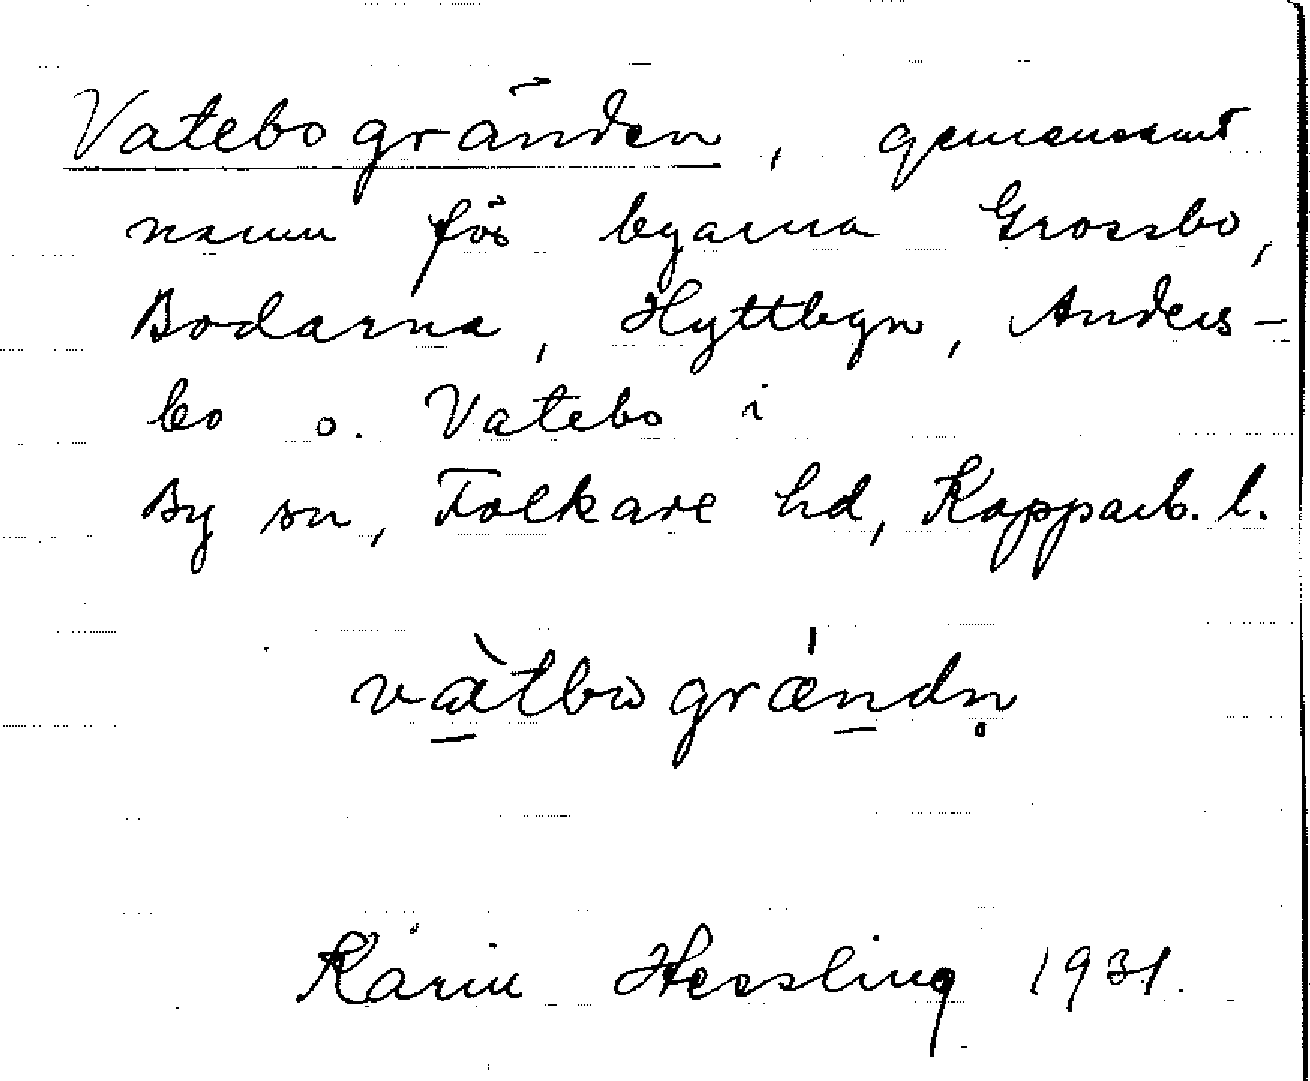 Vatebogränden, gemensamt
namn för byarna Grossbo,
Bodarna, Hyttbyn, Anders-
bo o. Vatebo i
By sn, Folkare hd, Kopparb. l.
và̱tbωgrænd̥n
Karin Hessling 1931.